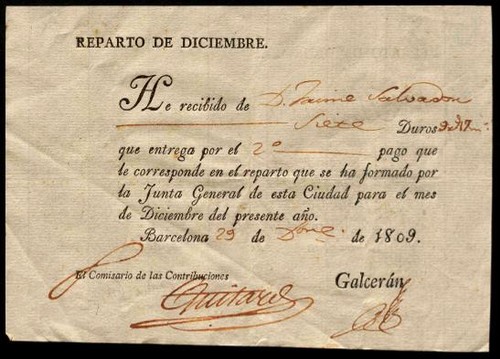 REPARTO DE DICIEMBRE.
He recibido de D. Jaime Salvador
Siete Duros
que entrega por el 2º pago que
le corresponde en el reparto que se ha formado por
la Junta General de esta Ciudad para el mes
de Diciembre del presente año.
Barcelona 29 de de 1809.
El Comisario de las Contribuciones Galcerán